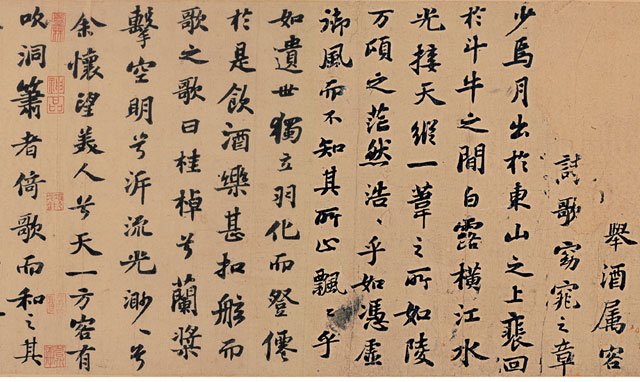 舉酒属客
詩歌窈窕之章
少焉月出於東山之上裵回
於斗牛之間白露橫江水
光接天縱一葦之所如陵
万頃之茫然浩〻乎如憑虛
御風而不知其所止飄〻乎
如遺世獨立羽化而登僊
於是飲酒樂甚扣舷而
歌之歌曰桂棹兮蘭槳
擊空明兮泝流光渺〻兮
余懷望美人兮天一方客有
吹洞簫者倚歌而和之其